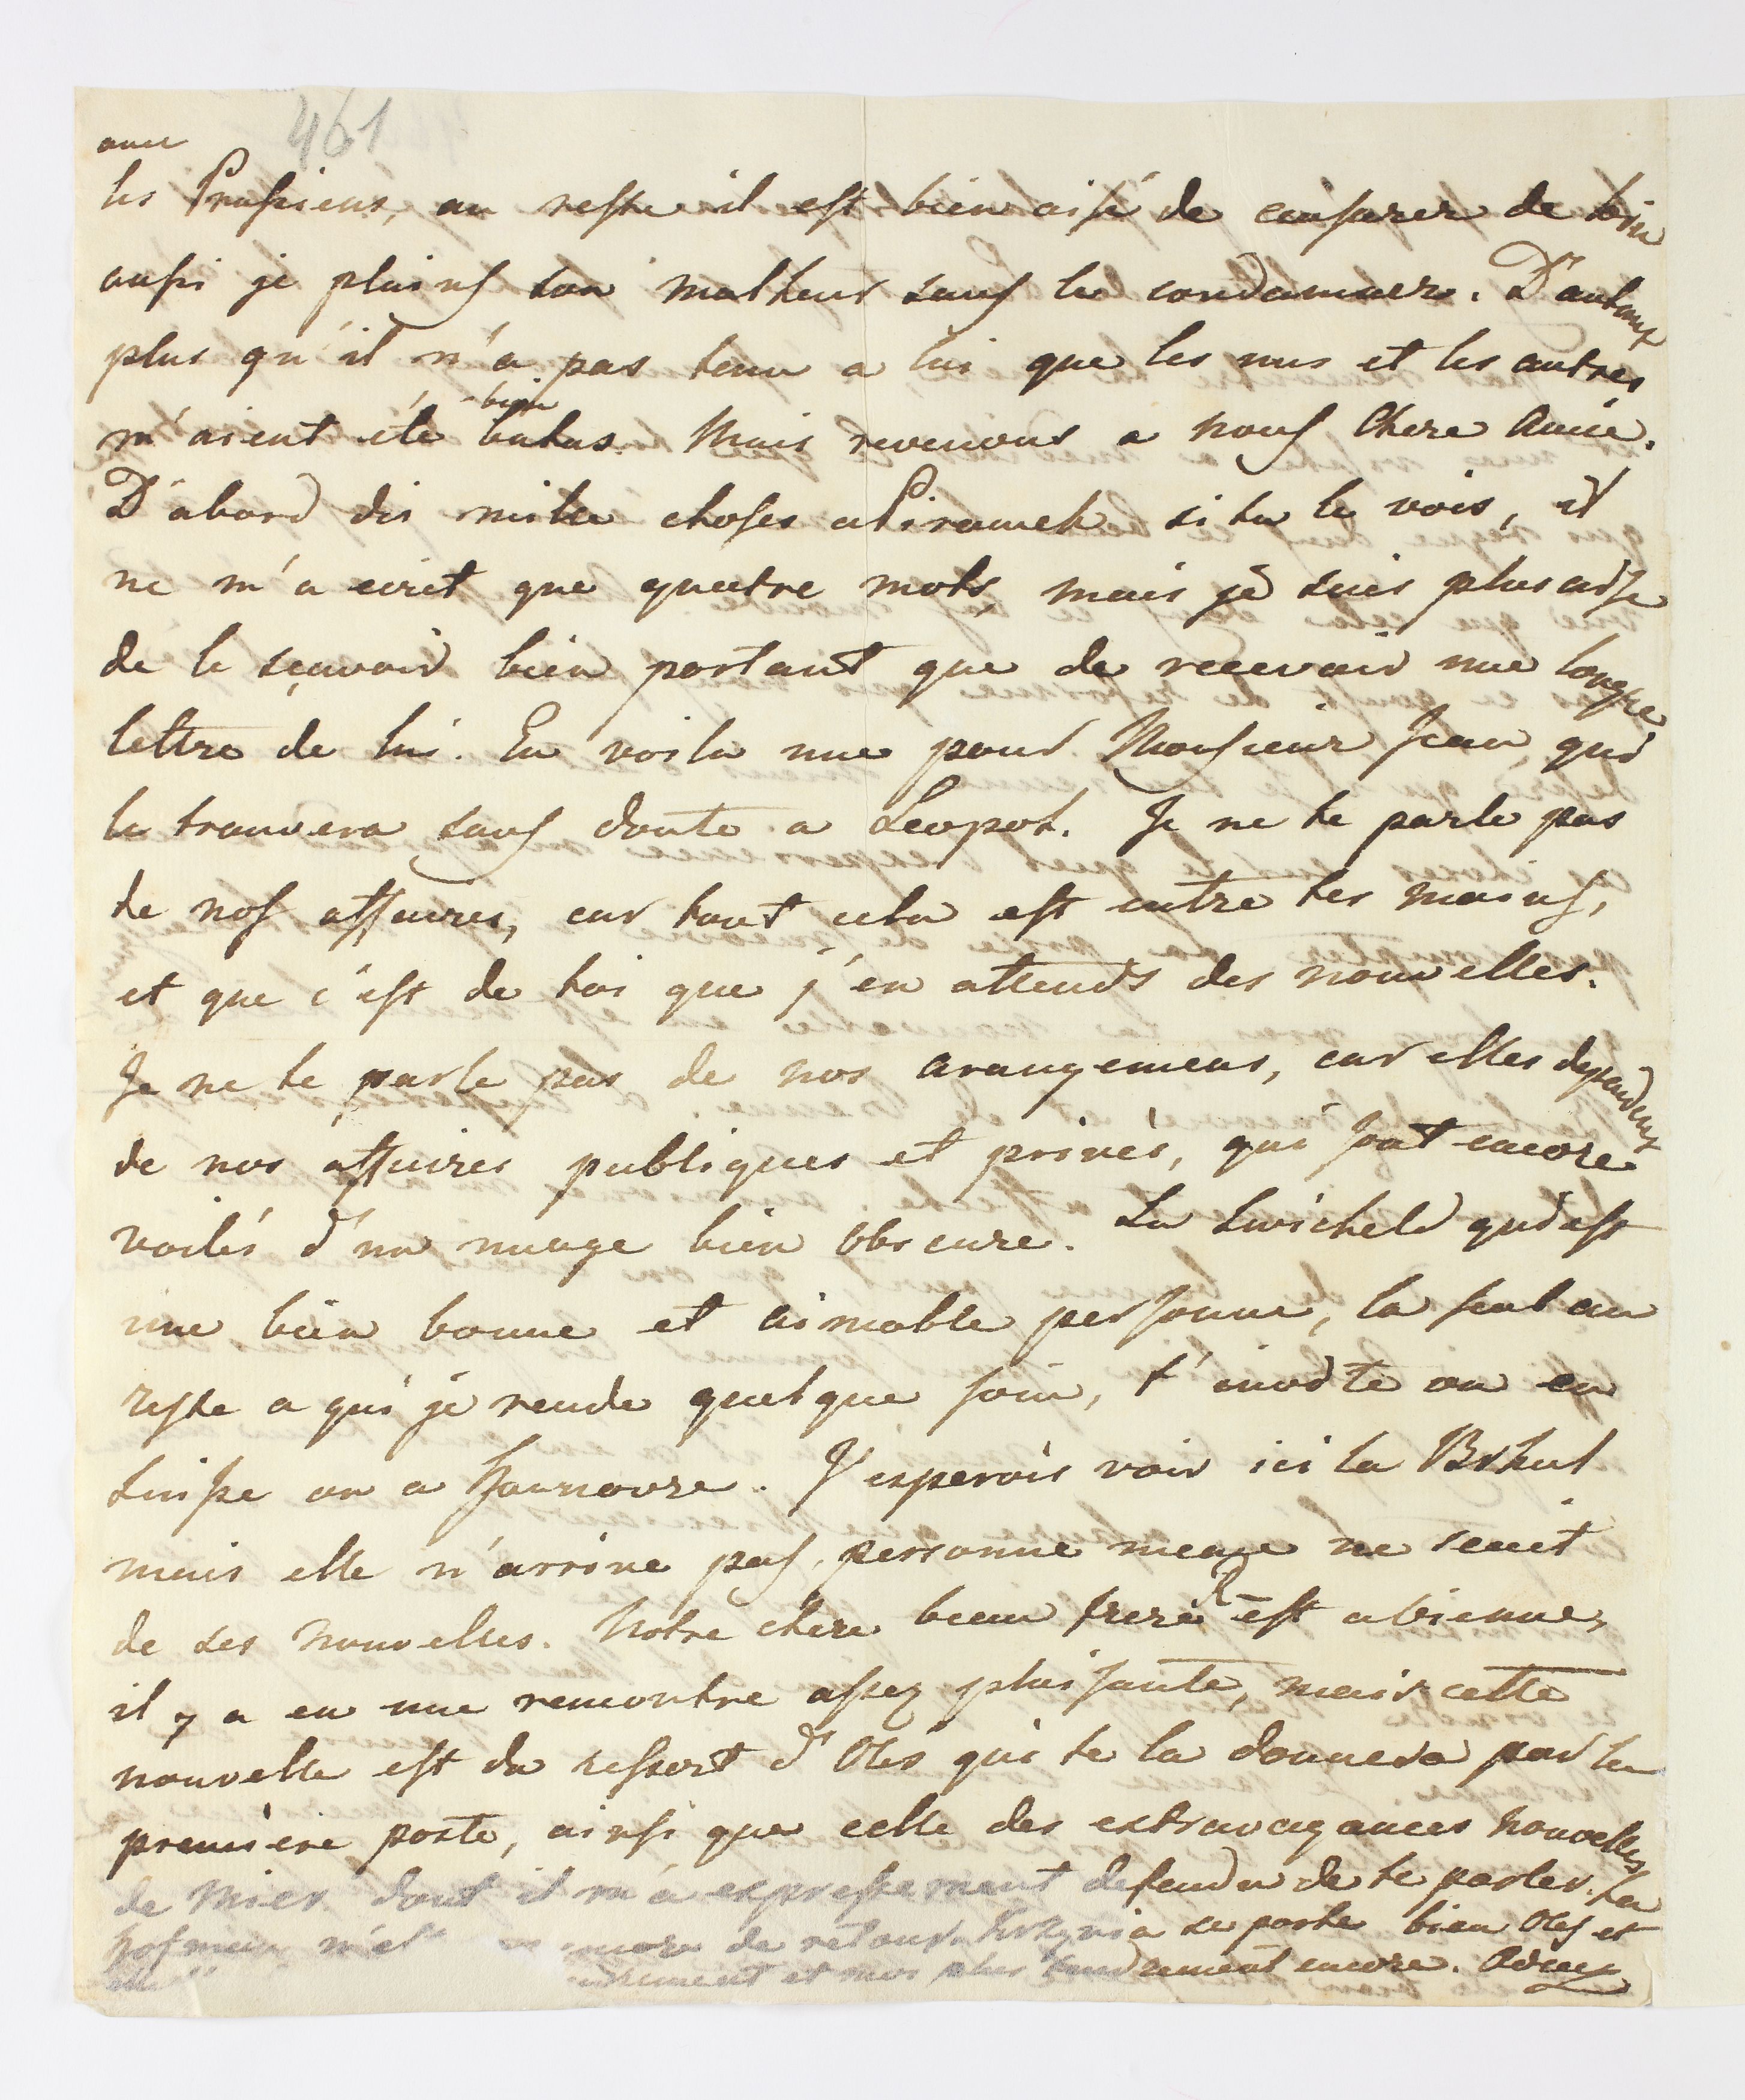 461
avec
les Prussiens, au reste il est bien aisé de censurer de loin
aussi je plains son malheur sans le condamner. D'autant
plus qu'il n'a pas tenu a lui que les uns et les autres
n'aient été bien batus. Mais revenons a nous Chere Amie.
D'abord dis mille choses a Piramek si tu le vois, il
ne m'a ecrit que quatre mots, mais je suis plus aise
de le sçavoir bien portant que de recevoir une longue
lettre de lui. En voila une pour Monsieur Jean, qui
le trouvera sans doute a Leopol. Je ne te parle pas
de nos affaires, car tout cela est entre tes mains,
et que c'est de toi que j'en attends des nouvelles.
Je ne te parle pas de nos arangemens, car elles dependent
de nos affaires publiques et privés, qui sont encore
voilés d'un nuage bien obscure. La Swicheld qui est
une bien bonne et aimable personne, la seul au
reste a qui je rende quelque soin, t'invite ou en
Suisse ou a Hannovre. J'esperois voir ici la Brhul
mais elle n'arrive pas, personne meme ne scait
de ses nouvelles. Notre chere beau frere est a Vienne,
il y a eu une rencontre assez plaisante, mais cette
nouvelle est du ressort d'Oles qui te la donnera par la
première poste, ainsi que celle des extravagances nouvelles
de Mier dont il m'a expressement defendu de te parler. La
Hofmein n'est encore de retour. se porte bien Oles et
et mes plus tendrement encore. Adieu